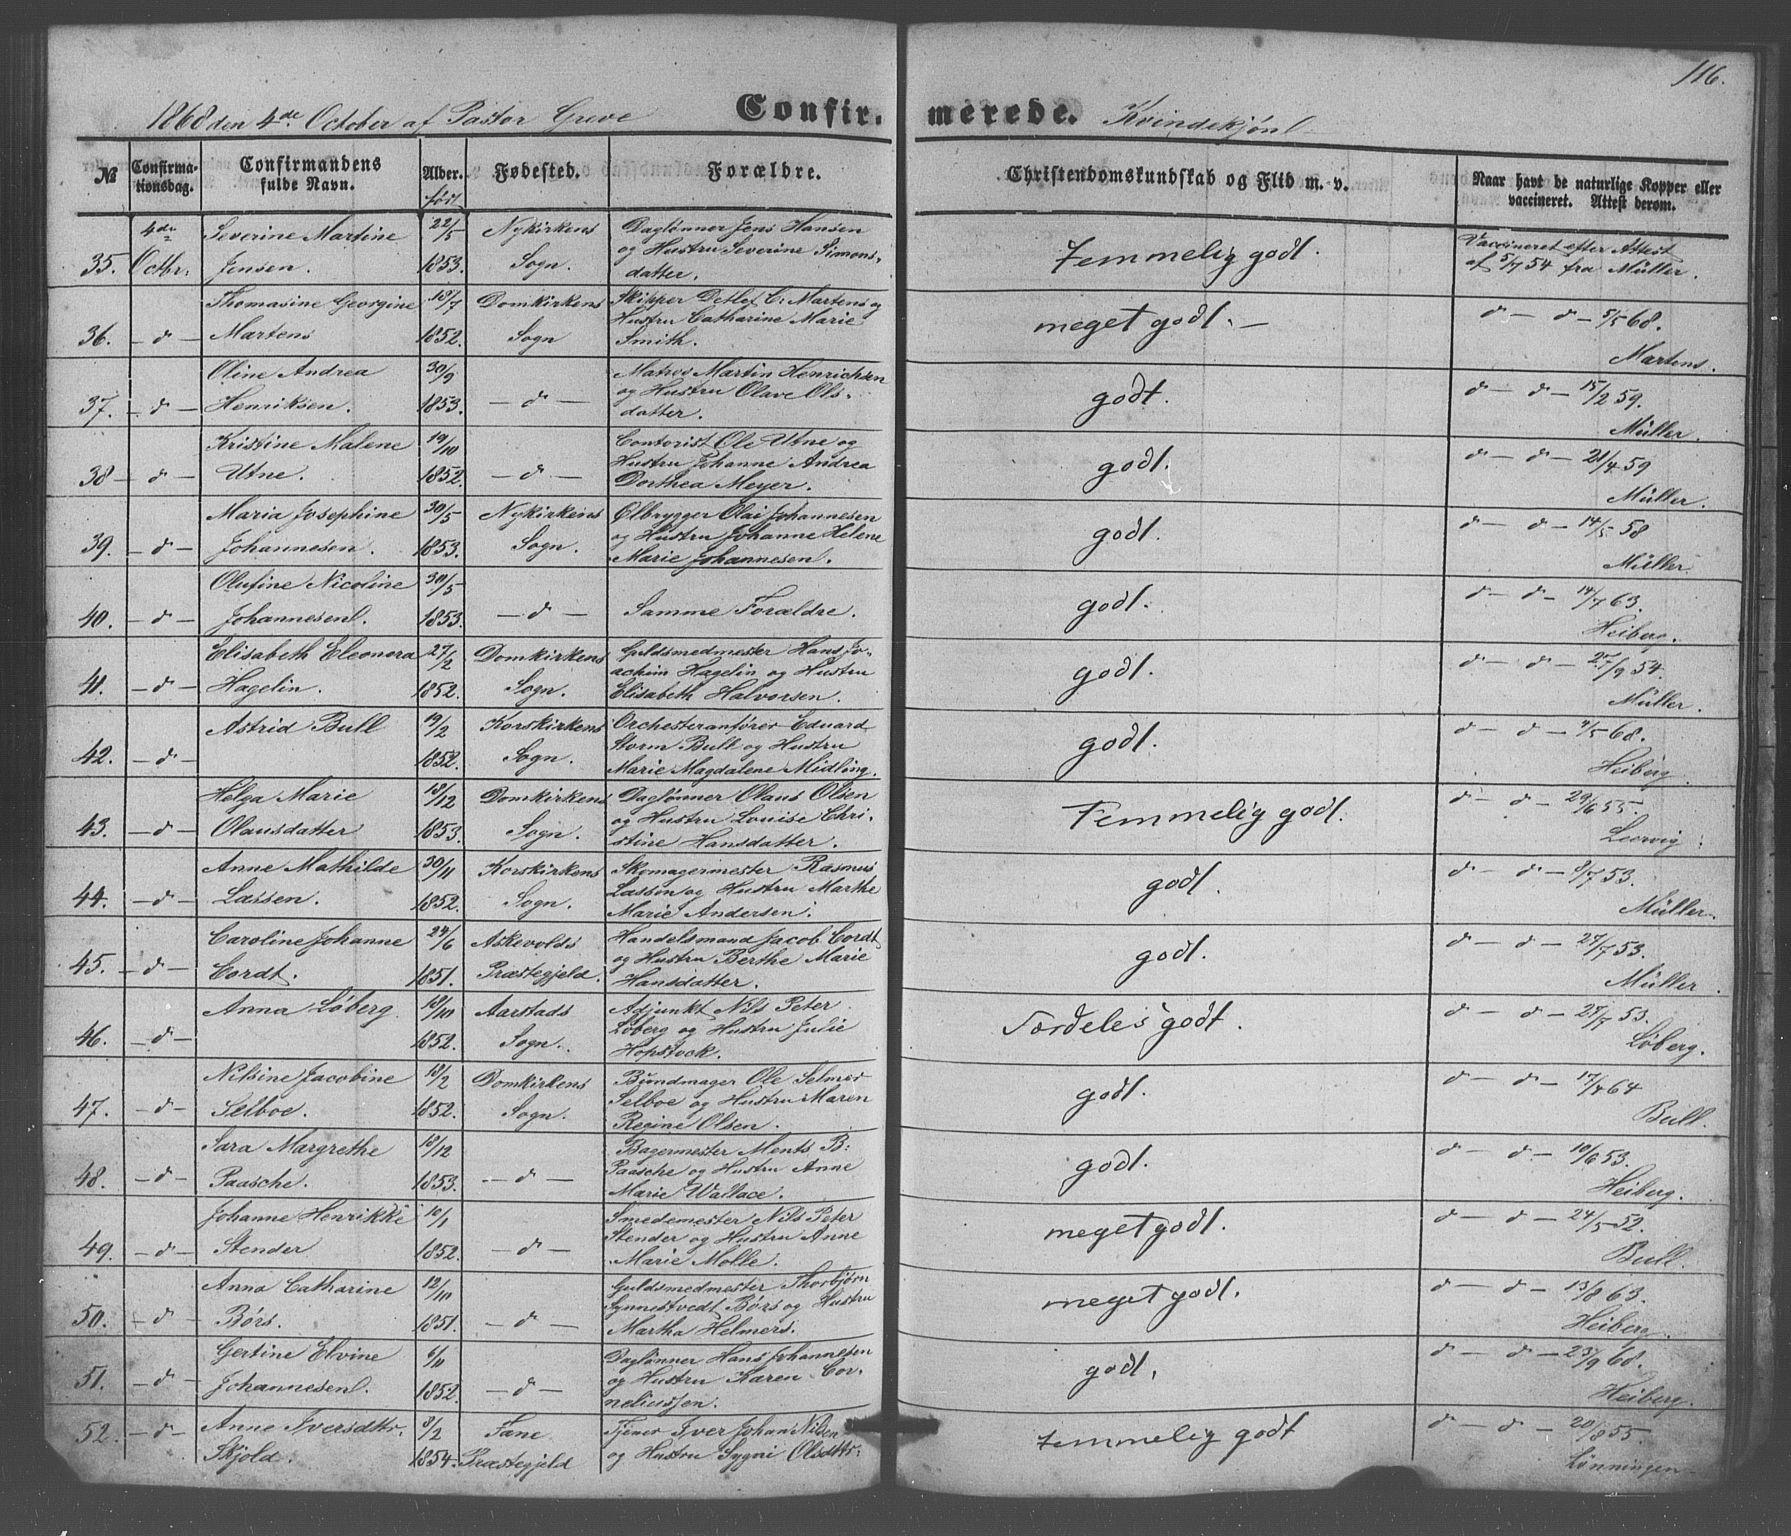 116.
1868 den 4de October af Pastor Greve Confir- merede. Kvindekjönl
№ Confirma-tionsdag. Confirmandens fulde Navn. Alder. født Fødested. Forældre. Christendomskundskab og Flid m. v. Naar havt de naturlige Kopper eller vaccineret. Attest derom.
4de Severine Martine 22/5 Nykirkens Daglønner Jens Hansen Vaccineret efter Attest
35. Octbr. Jensen. 1853. Sogn. og Hustru Severine Simons- Temmelig godl. af 5/7 54 fra Müller.
datter.
Thomasine Georgine 18/7 Domkirkens Skipper Detlef C. Martens og d — d — 5/5 68.
36. — d — Martens 1852. Sogn Hustru Catharine Marie meget godl. —
Smith. Martens.
Oline Andrea 30/9 Matros Martin Henrichsen d — d — 15/2 59.
37. — d — Henriksen. 1853. — d — og Hustru Olave Ols- godt.
datter. Müller.
Kristine Malene 19/10 Contorist Ole Utne og d — d — 21/4 59
38 — d — Utne. 1852. — d — Hustru Johanne Andrea godl.
Dorthea Meyer. Müller.
Maria Josephine 30/5 Nykirkens Ølbrygger Olai Johannesen d — d — 14/5 58
39. — d — Johannesen. 1853. Sogn. og Hustru Johanne Helene godl.
Marie Johannesen. Müller.
Olufine Nicoline 30/5 d — d — 14/7 63.
40. — d — Johannesenl. 1853. — d — Samme Forældre. godl.
Heiberg.
Elisabeth Eleonora 27/2 Domkirkens Guldsmedmester Hans Jo- d — d — 27/9 54.
41. — d — Hagelin. 1852. Sogn. achim Hagelin og Hustru godl.
Elisabeth Halvorsen. Müller.
Astrid Bull 19/2 Korskirkens Orchesteranfører Eduard d — d — 4/5 68.
42. — d — 1852. Sogn. Storm Bull og Hustru godl.
Marie Magdalene Midling. Heiberg
Helga Marie 18/12 Domkirkens Daglønner Olaus Olsen d — d — 29/6 55.
43. — d — Olausdatter 1853. Sogn. og Hustru Louise Chri- Temmelig godl.
stine Hansdatter. Leervig.
Anne Mathilde 30/11 Korskirkens Skomagermester Rasmus d — d — 8/7 53.
44. — d — Lassen. 1852. Sogn. Lassen og Hustru Marthe godl.
Marie Andersen. Müller.
Caroline Johanne 24/6 Askevolds Handelsmand Jacob Cordt d — d — 27/7 53.
45. — d — Cordt. 1851. Præstegjeld. og Hustru Berthe Marie godl.
Hansdatter. Müller
Anna Løberg 18/10 Aarstads Adjunkt Nils Peter d — d — 25/7 53.
46. — d — 1852. Sogn. Løberg og Hustru Julie Særdeles godt.
Hopstock. Løberg.
Nilsine Jacobine 13/2 Domkirkens Bundmager Ole Selmer d — d — 17/4 64
47. — d — Selboe. 1852. Sogn. Selboe og Hustru Maren godl.
Regine Olsen. Bull.
Sara Margrethe 18/12 Bagermester Ments B: d — d — 10/6 53.
48. — d — Paasche. 1853. — d — Paasche og Hustru Anne godl.
Marie Wallace. Heiberg.
Johanne Henrikke 10/1 Smedemester Nils Peter d — d — 24/5 52.
49. — d — Stender 1852. — d — Stender og Hustru Anne meget godl.
Marie Molle. Bull.
Anna Catharine 12/10 Guldsmedmester Thorbjørn d — d — 13/8 63.
50. — d — Børs. 1851. — d — Synnestvedt Børs og Hustru meget godl.
Martha Helmers. Heiberg.
Gertine Elvine Daglønner Hans Johannesen d — d — 23/9 68.
51. — d — Johannesenl. 1852 — d — og Hustru Karen Cor- godl.
neliussen. Heiberg.
52. — d — Anne Iversdttr. 8/2 Fane Tjener Iver Johan Nilsen d — d — 20/8 55.
Skjold. 1854. Præstegjeld og Hustru Sygni Olsdttr. Temmelig godt
Lønningen